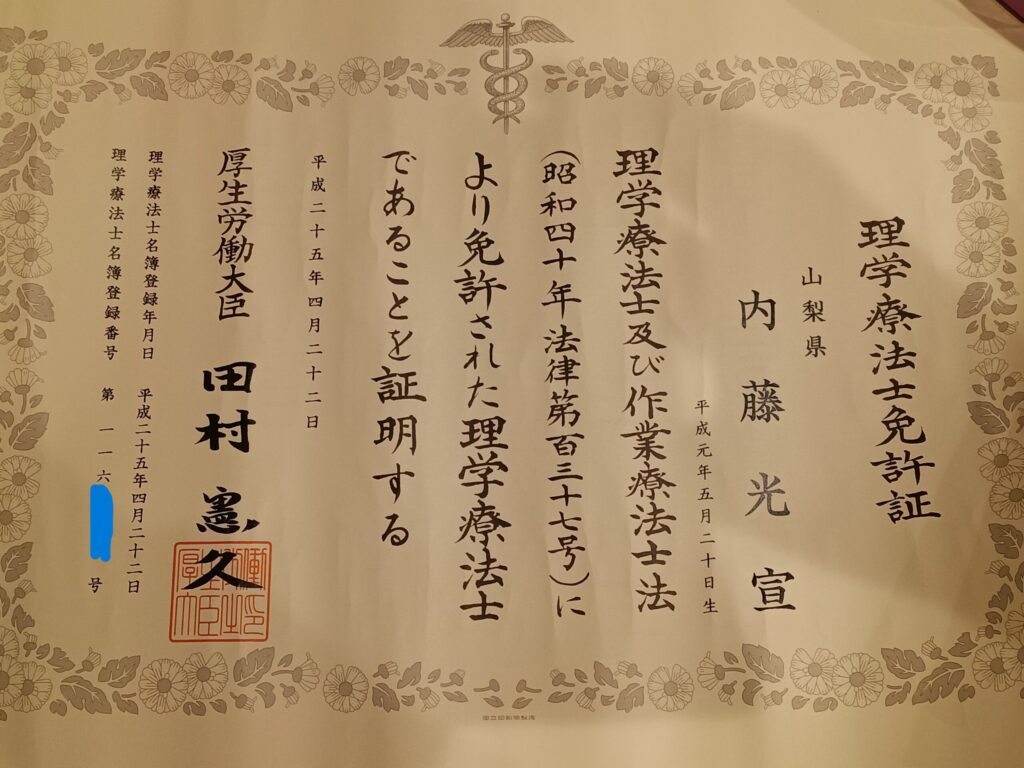 理学療法士免許証
山梨県
内藤光宣
平成元年五月二十日生
理学療法士及び作業療法士法
(昭和四十年法律第百三十七号)に
より免許された理学療法士
であることを証明する
平成二十五年四月二十二日
厚生労働大臣 田村憲久
理学療法士名簿登録年月日 平成二十五年四月二十二日
理学療法士名簿登録番号 第一一六 号